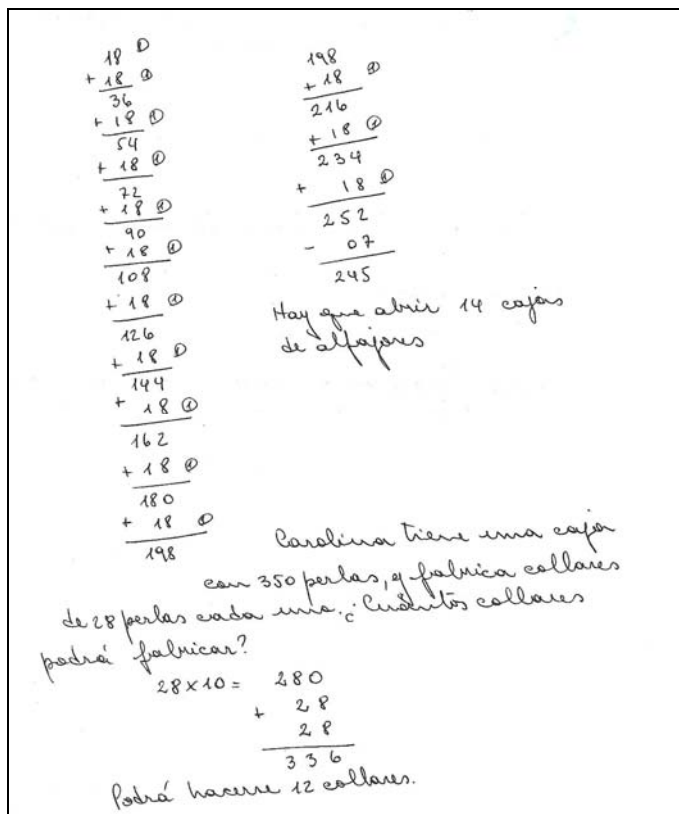 18 ①
+ 18 ①
36
+ 18 ①
54
+ 18 ①
72
+ 18 ①
90
+ 18 ①
108
+ 18 ①
126
+ 18 ①
144
+ 18 ①
162
+ 18 ①
180
+ 18 ①
198
198
+ 18 ①
216
+ 18 ①
234
+ 18 ①
252
- 07
245
Hay que abrir 14 cajas
de alfajores
Carolina tiene una caja
con 350 perlas, y fabrica collares
de 28 perlas cada uno. ¿Cuántos collares
podrá fabricar?
28 x 10 = 280
+ 28
28
336
Podrá hacerse 12 collares.